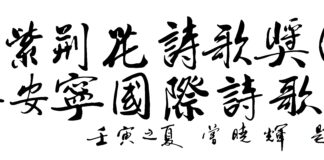 紫荆花詩歌獎
安寧國際詩歌
壬寅之夏 曾曉輝 題